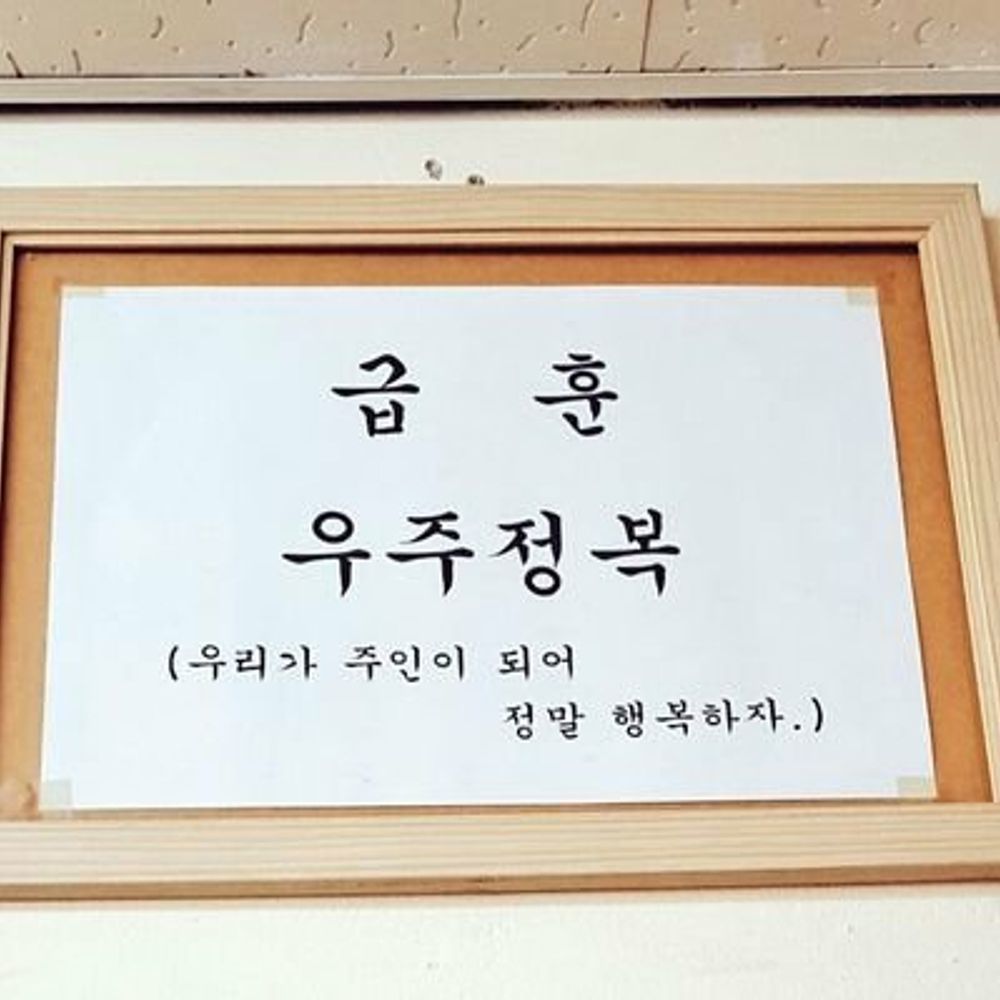 급 훈
우주정복
(우리가 주인이 되어
정말 행복하자.)